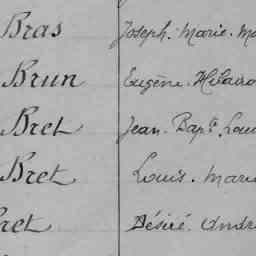 Bras Joseph. Marie.
Brun Eugène. Hilaire
Bret Jean. Bapte Loui
Bret Louis. Marie
ret Désiré. André